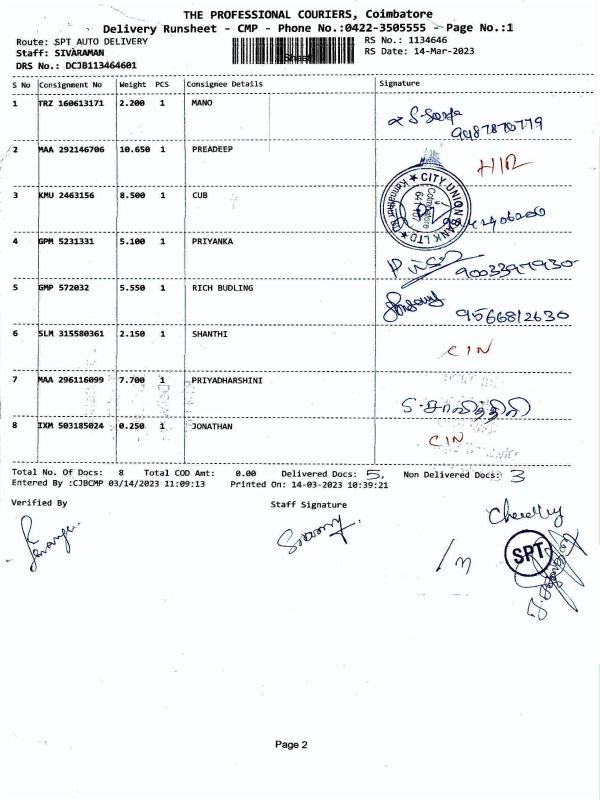 THE PROFESSIONAL COURIERS, Coimbatore
Delivery Runsheet - CMP - Phone No.:0422-3505555 - Page No.:1
Route: SPT AUTO DELIVERY
Staff: SIVARAMAN
DRS No.: DCJB113464601
RS No.: 1134646
RS Date: 14-Mar-2023
S No Consignment No Weight PCS Consignee Details Signature
1 TRZ 160613171 2.200 1 MANO
9987870779
2 MAA 292146706 10.650 1 PREADEEP
3 KMU 2463156 8.500 1 CUB
CITY UNION BANK LTD
Coimbatore
4 GPM 5231331 5.100 1 PRIYANKA
9003397930
5 GMP 572032 5.550 1 RICH BUDLING
9566812630
6 SLM 315580361 2.150 1 SHANTHI
CIN
7 MAA 296116099 7.700 1 PRIYADHARSHINI
8 IXM 503185024 0.250 1 JONATHAN
CIN
Total No. Of Docs: 8 Total COD Amt: 0.00 Delivered Docs: 5. Non Delivered Docs: 3
Entered By :CJBCMP 03/14/2023 11:09:13 Printed On: 14-03-2023 10:39:21
Verified By
Staff Signature
SPT
Page 2